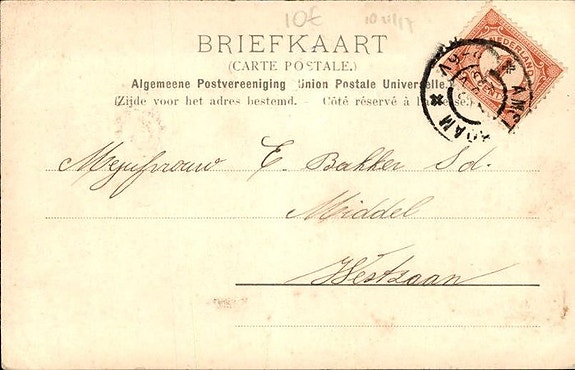 10€
BRIEFKAART
(CARTE POSTALE.)
Algemeene Postvereeniging Union Postale Universelle.
(Zijde voor het adres bestemd. - Côté réservé à l'adresse.)
NEDERLAND
CENT
AMST DAM
Mejufvrouw E. Bakker Sd.
Middel
Westzaan